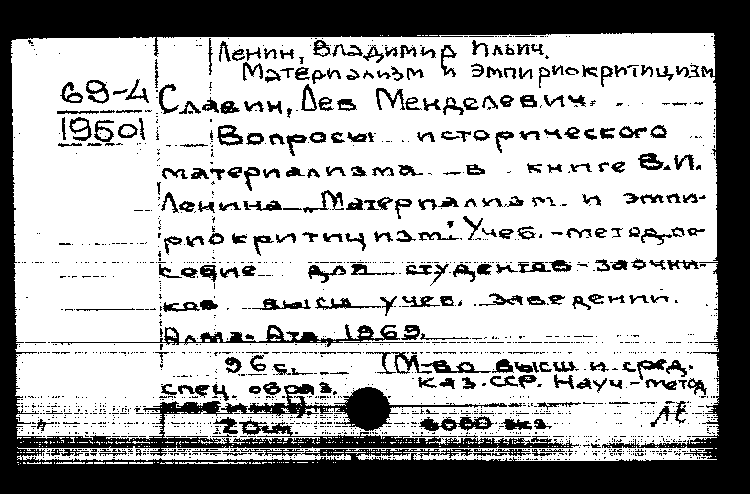 Ленин, Владимир Ильич.
Материализм и эмпириокритицизм
69-4
19501
Славин, Лев Менделевич.
Вопросы исторического
материализма в книге В.И.
Ленина „Материализм и эмпи-
риокритицизм". Учеб.-метод. по-
собие для студентов-заочни-
ков высш. учеб. заведений.
Алма-Ата, 1969.
96 с. (М-во высш и сред.
спец. образ. Каз.ССР. Науч.-метод
кабинет).
20 см. 6000 экз.